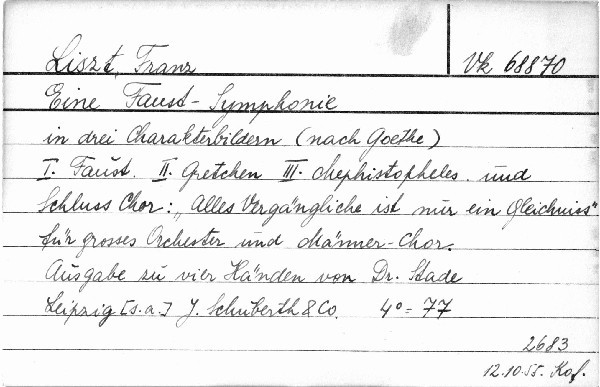 Liszt, Franz
Vk 68870
Eine Faust-Symphonie
in drei Charakterbildern (nach Goethe)
I. Faust. II. Gretchen III. Mephistopheles. und
Schluss Chor: „Alles Vergängliche ist nur ein Gleichniss"
für grosses Orchester und Männer-Chor.
Ausgabe zu vier Händen von Dr. Stade
Leipzig [s.a.] J. Schuberth & Co. 4º = 77
2683
12.10.55. Kof.